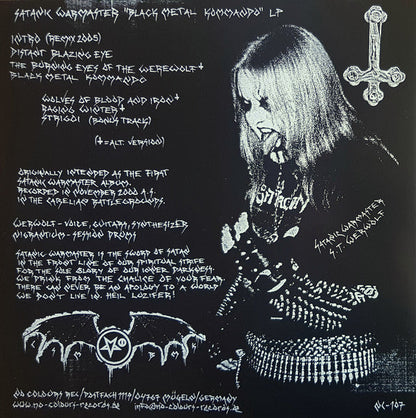 SATANIC WARMASTER "BLACK METAL KOMMANDO" LP
INTRO (REMIX 2005)
DISTANT BLAZING EYE
THE BURNING EYES OF THE WEREWOLF+
BLACK METAL KOMMANDO
WOLVES OF BLOOD AND IRON+
RAGING WINTER+
STRIGOI (BONUS TRACK)
(+=ALT. VERSION)
ORIGINALLY INTENDED AS THE FIRST
SATANIC WARMASTER ALBUM.
RECORDED IN NOVEMBER 2000 A.S.
IN THE CARELIAN BATTLEGROUNDS.
WERWOLF - VOICE, GUITARS, SYNTHESIZER
VHORANTIUM - SESSION DRUMS
SATANIC WARMASTER IS THE SWORD OF SATAN
IN THE FRONT LINE OF OUR SPIRITUAL STRIFE
FOR THE SOLE GLORY OF OUR INNER DARKNESS.
WE DRINK FROM THE CHALICE OF YOUR FEAR
THERE CAN NEVER BE AN APOLOGY TO A WORLD
WE DON'T LIVE IN. HEIL LUZIFER!
SATANIC WARMASTER
S.T. WERWOLF
NO COLOURS REC/POSTFACH 1119/04767 MÜGELN/GERMANY
WWW.NO-COLOURS-RECORDS.DE INFO@NO-COLOURS-RECORDS.DE
NC-107